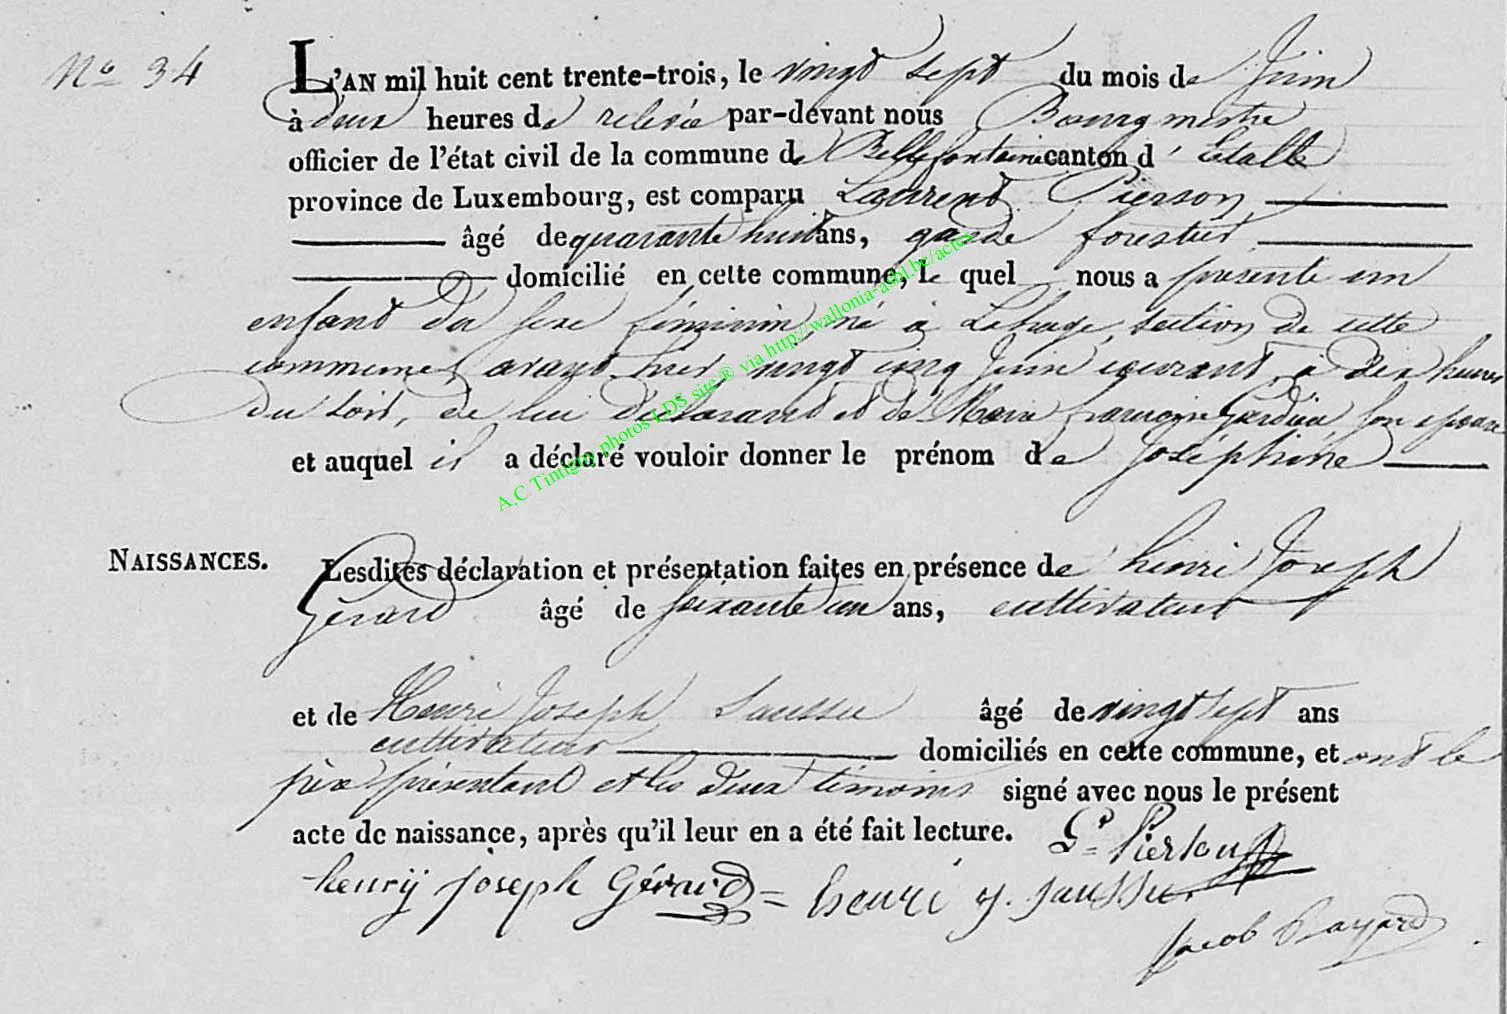 N° 34
L'AN mil huit cent trente-trois, le vingt sept du mois de Juin
à deux heures de relevée par-devant nous Bourgmestre
officier de l'état civil de la commune de Bellefontaine canton d'Etalle
province de Luxembourg, est comparu Laurent Pierson
âgé de quarante huit ans, garde forestier
domicilié en cette commune, le quel nous a présenté un
enfant du sexe féminin, né à Lahage, section de cette
commune, avant hier, vingt cinq Juin courant, à dix heures
du soir, de lui déclarant et de Marie françoise son épouse
et auquel il a déclaré vouloir donner le prénom de Joséphine
NAISSANCES.
Lesdites déclaration et présentation faites en présence de henri Joseph
Gérard âgé de soixante un ans, cultivateur
et de Henri Joseph Saussu âgé de vingt sept ans
cultivateur domiciliés en cette commune, et ont le
père présentant et les deux témoins signé avec nous le présent
acte de naissance, après qu'il leur en a été fait lecture. Pierson
henry joseph Gérard = henri j. saussu
jacob Bayard
A.C Tintigny photos LDS site ® via http://wallonia-asbl.be/actes